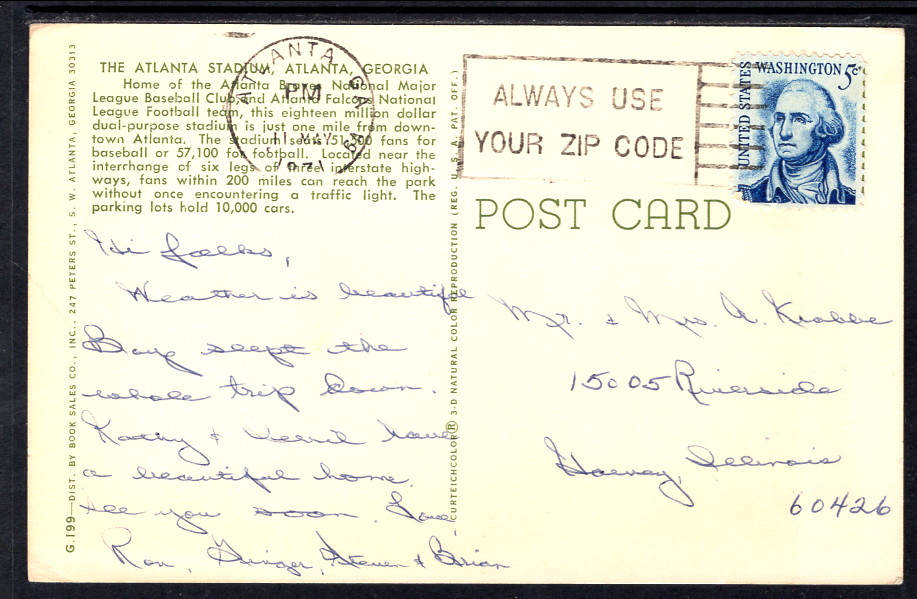 THE ATLANTA STADIUM, ATLANTA, GEORGIA
Home of the Atlanta Braves National Major
League Baseball Club and Atlanta Falcons National
League Football team, this eighteen million dollar
dual-purpose stadium is just one mile from down-
town Atlanta. The stadium seats 51,500 fans for
baseball or 57,100 for football. Located near the
interchange of six legs of three interstate high-
ways, fans within 200 miles can reach the park
without once encountering a traffic light. The
parking lots hold 10,000 cars.
ATLANTA, GA
PM
11 MAY
ALWAYS USE
YOUR ZIP CODE
UNITED STATES
WASHINGTON 5¢
POST CARD
Hi folks,
Weather is beautiful
Boys slept the
whole trip down.
Kathy & have
a beautiful home.
See you soon. Love,
Ron, Ginger, Steven & Brian
Mr. & Mrs. A. Krabbe
15005 Riverside
Harvey, Illinois
60426
G.199—DIST. BY BOOK SALES CO., INC., 247 PETERS ST., S. W. ATLANTA, GEORGIA 30313
CURTEICHCOLOR® 3-D NATURAL COLOR REPRODUCTION (REG. U. S. A. PAT. OFF.)